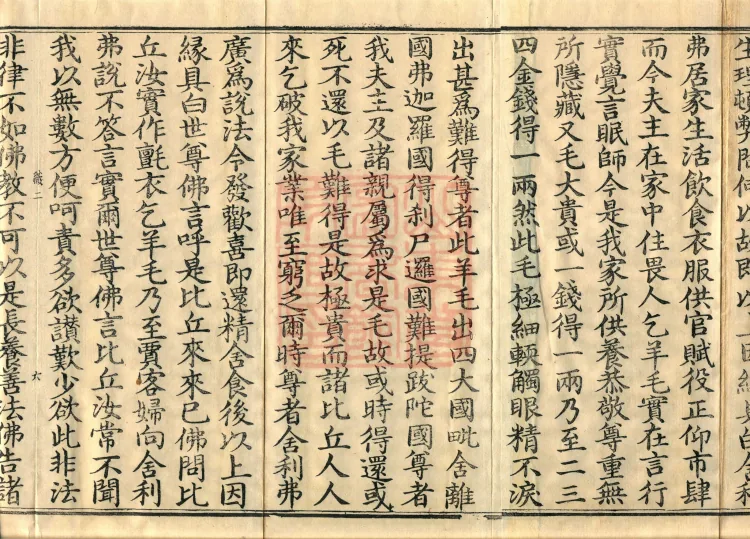 弗居家生活飲食衣服供官賦役正仰市肆
而今夫主在家中住畏人乞羊毛實在言行
實覺言眠師今是我家所供養恭敬尊重無
所隱藏又毛大貴或一錢得一兩乃至二三
四金錢得一兩然此毛極細輭觸眼精不淚
出甚爲難得尊者此羊毛出四大國毗舍離
國弗迦羅國得剎尸邏國難提跋陀國尊者
我夫主及諸親屬爲求是毛故或時得還或
死不還以毛難得是故極貴而諸比丘人人
來乞破我家業唯至窮乏爾時尊者舍利弗
廣爲說法令發歡喜即還精舍食後以上因
緣具白世尊佛言呼是比丘來來已佛問比
丘汝實作氈衣乞羊毛乃至賈客婦向舍利
弗說不答言實爾世尊佛言比丘汝常不聞
我以無數方便呵責多欲讃歎少欲此非法
非律不如佛教不可以是長養善法佛告諸
六